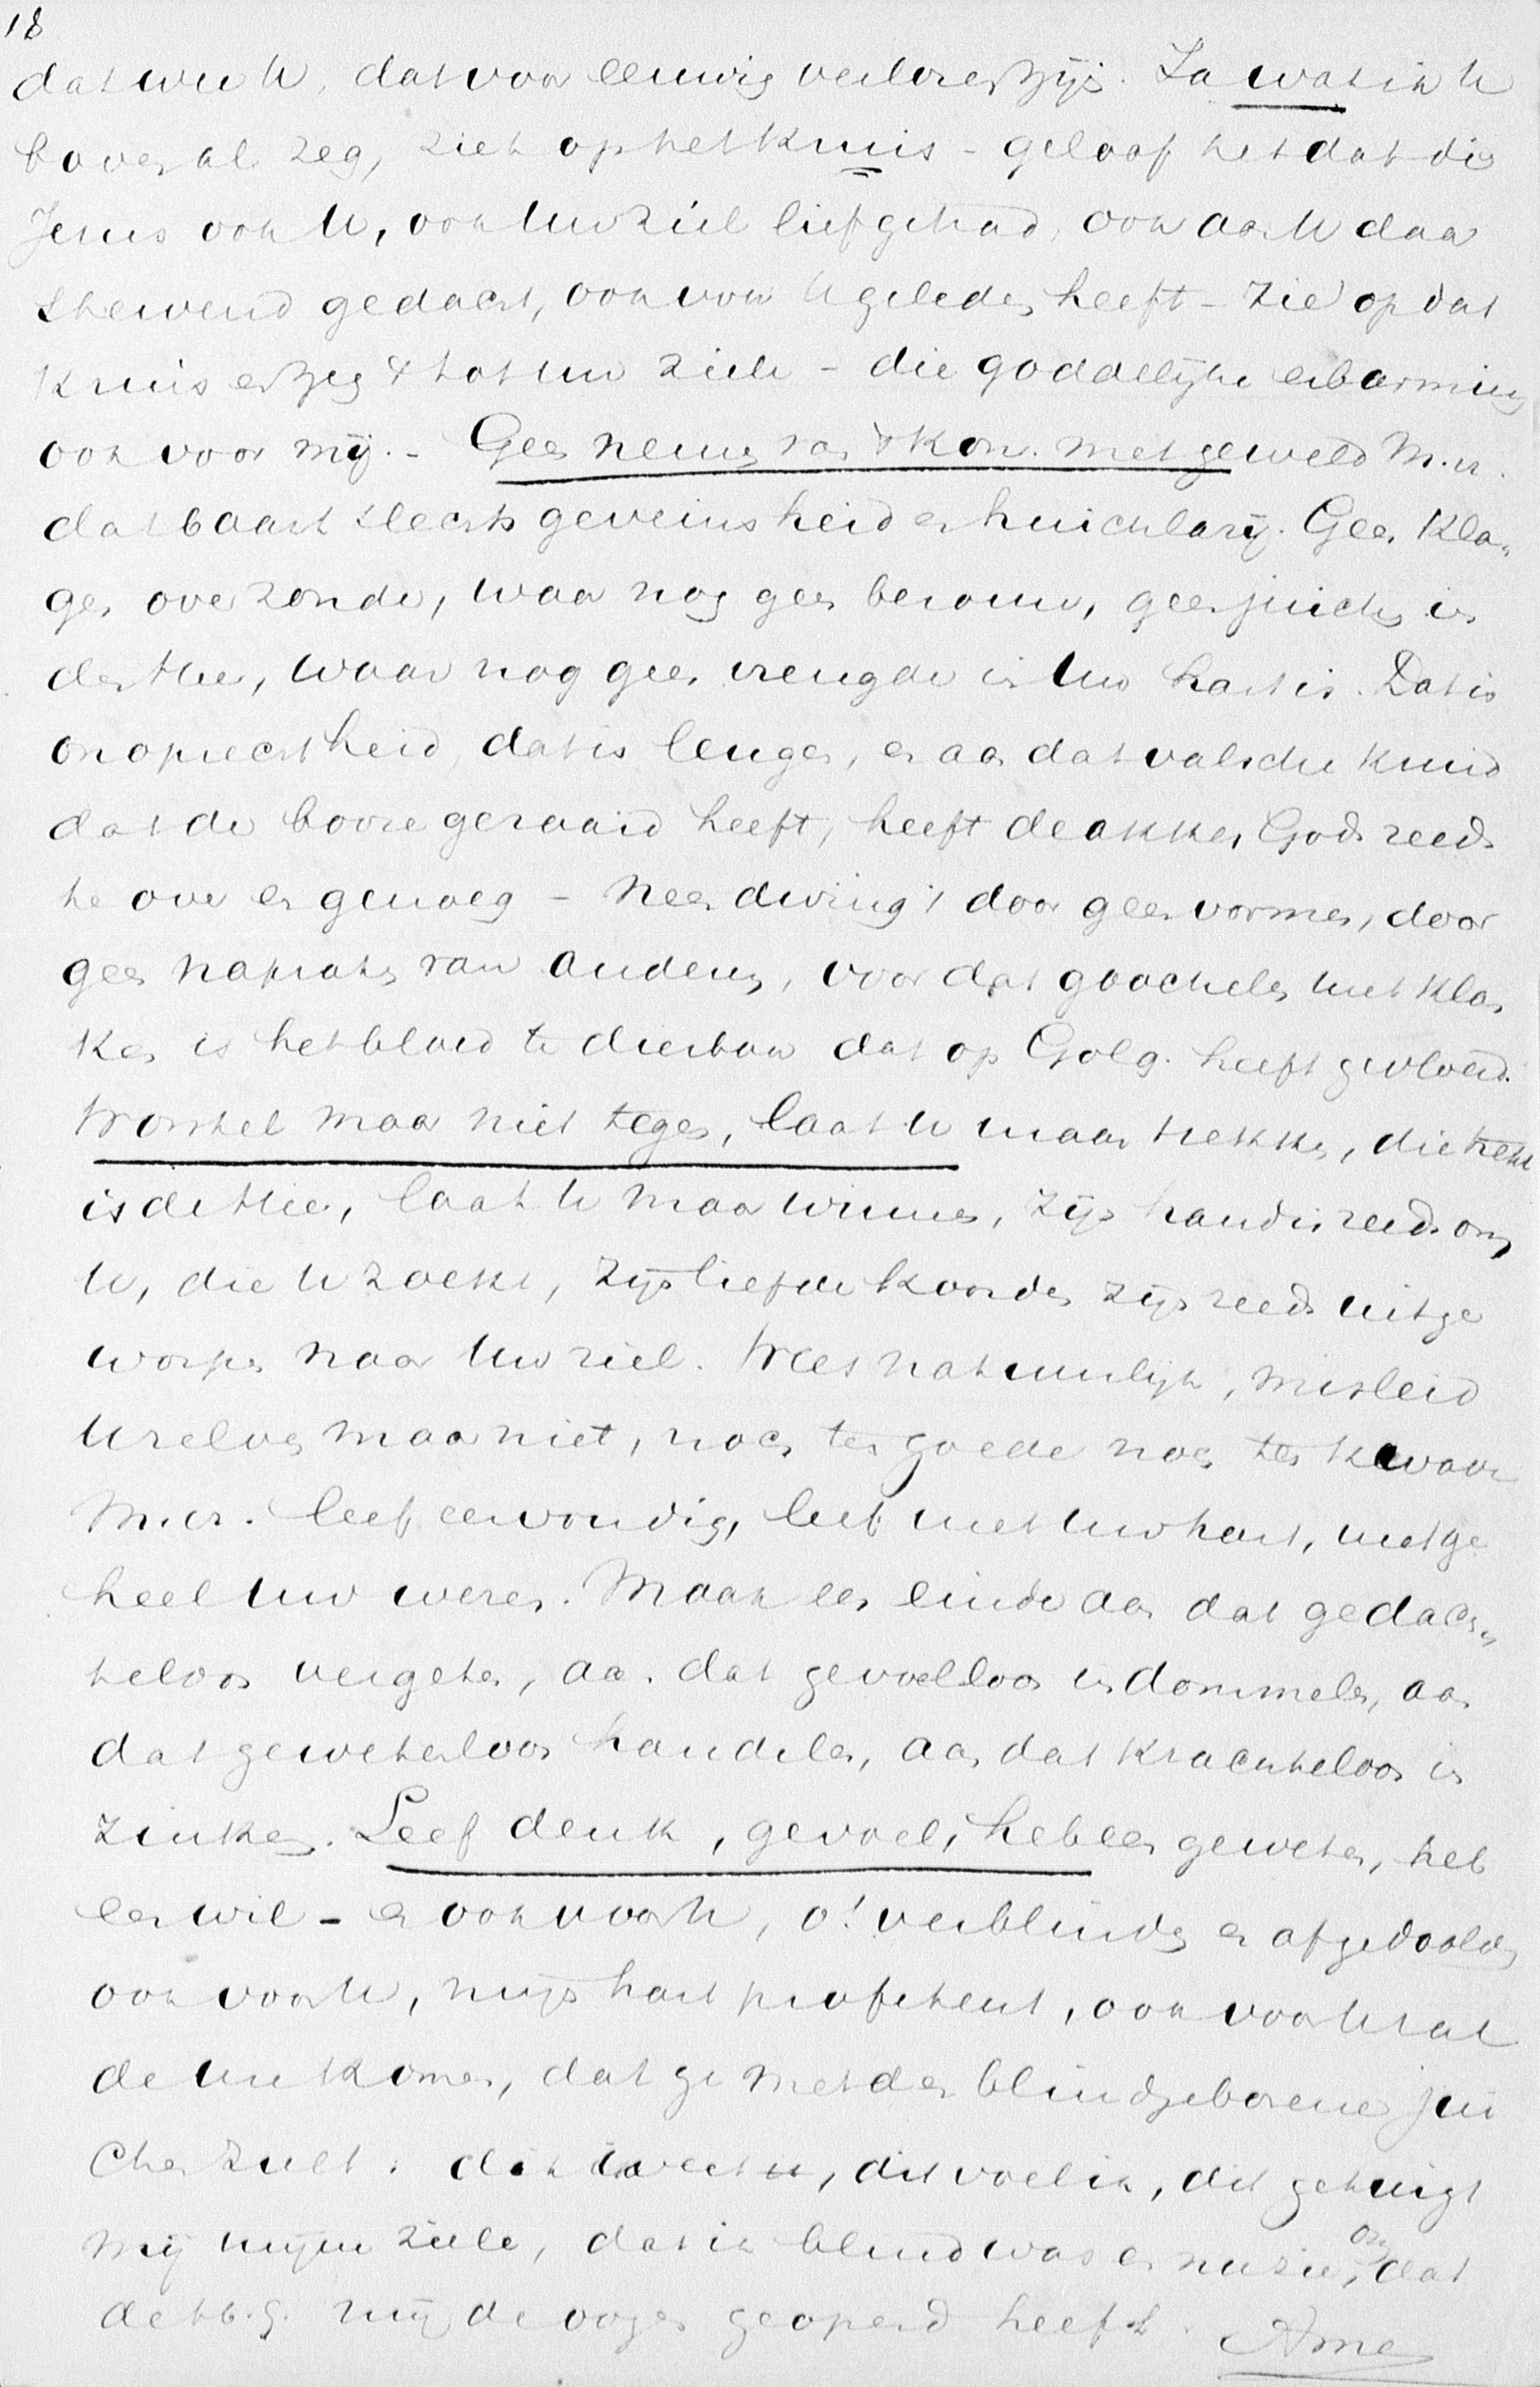 18
dat wee U, dat voor eeuwig verloren zijn. Ja wat ik U
bovenal zeg, ziet op het kruis - geloof het dat die
Jesus ook U, ook Uw ziel liefgehad, ook aan U daar
stervend gedacht, ook voor U geleden heeft - zie op dat
kruis en zeg 't tot uw ziele - die goddelijke erbarming
ook voor mij. - Geen nemen van 't Kon. met geweld M. vr.
dat baart slechts geveinsheid en huichlarij. Geen kla-
gen over zonde, waar nog geen berouw, geen juichen in
den Heer, waar nog geen vreugde in Uw hart is. Dat is
onoprechtheid, dat is leugen, en aan dat valsche kruid
dat de booze gezaaid heeft, heeft de akker Gods reeds
te over en genoeg - Neen dwing 't door geen vormen, door
geen napraten van anderen, voor dat goochelen met klan
ken is het bloed te dierbaar dat op Golg. heeft gevloeid.
Worstel maar niet tegen, laat U maar trekken, die trekt
is de Heer, laat U maar winnen, zijn hand is reeds om
U, die U zoekt, zijn liefde koorden zijn reeds uitge
worpen naar Uw ziel. Wees natuurlijk, misleid
Uzelven maar niet, noch ten goede noch ten kwade
M. vr. leef eenvoudig, leef met Uw hart, met ge
heel Uw wezen. Maak een einde aan dat gedach-
teloos vergeten, aan dat gevoelloos indommelen, aan
dat gewetenloos handelen, aan dat krachteloos in
zinken. Leef denk, gevoel, heb een geweten, heb
een wil - en ook voor U, o! verblinden en afgedoolden
ook voor U, mijn hart profeteert, ook voor U zal
de uur komen, dat ge met den blindgeborene jui
chen zult: dit weet ik, dit voel ik, dit getuigt
mij mijne ziele, dat ik blind was en nu zie, om dat
de H.G. mij de oogen geopend heeft. Amen